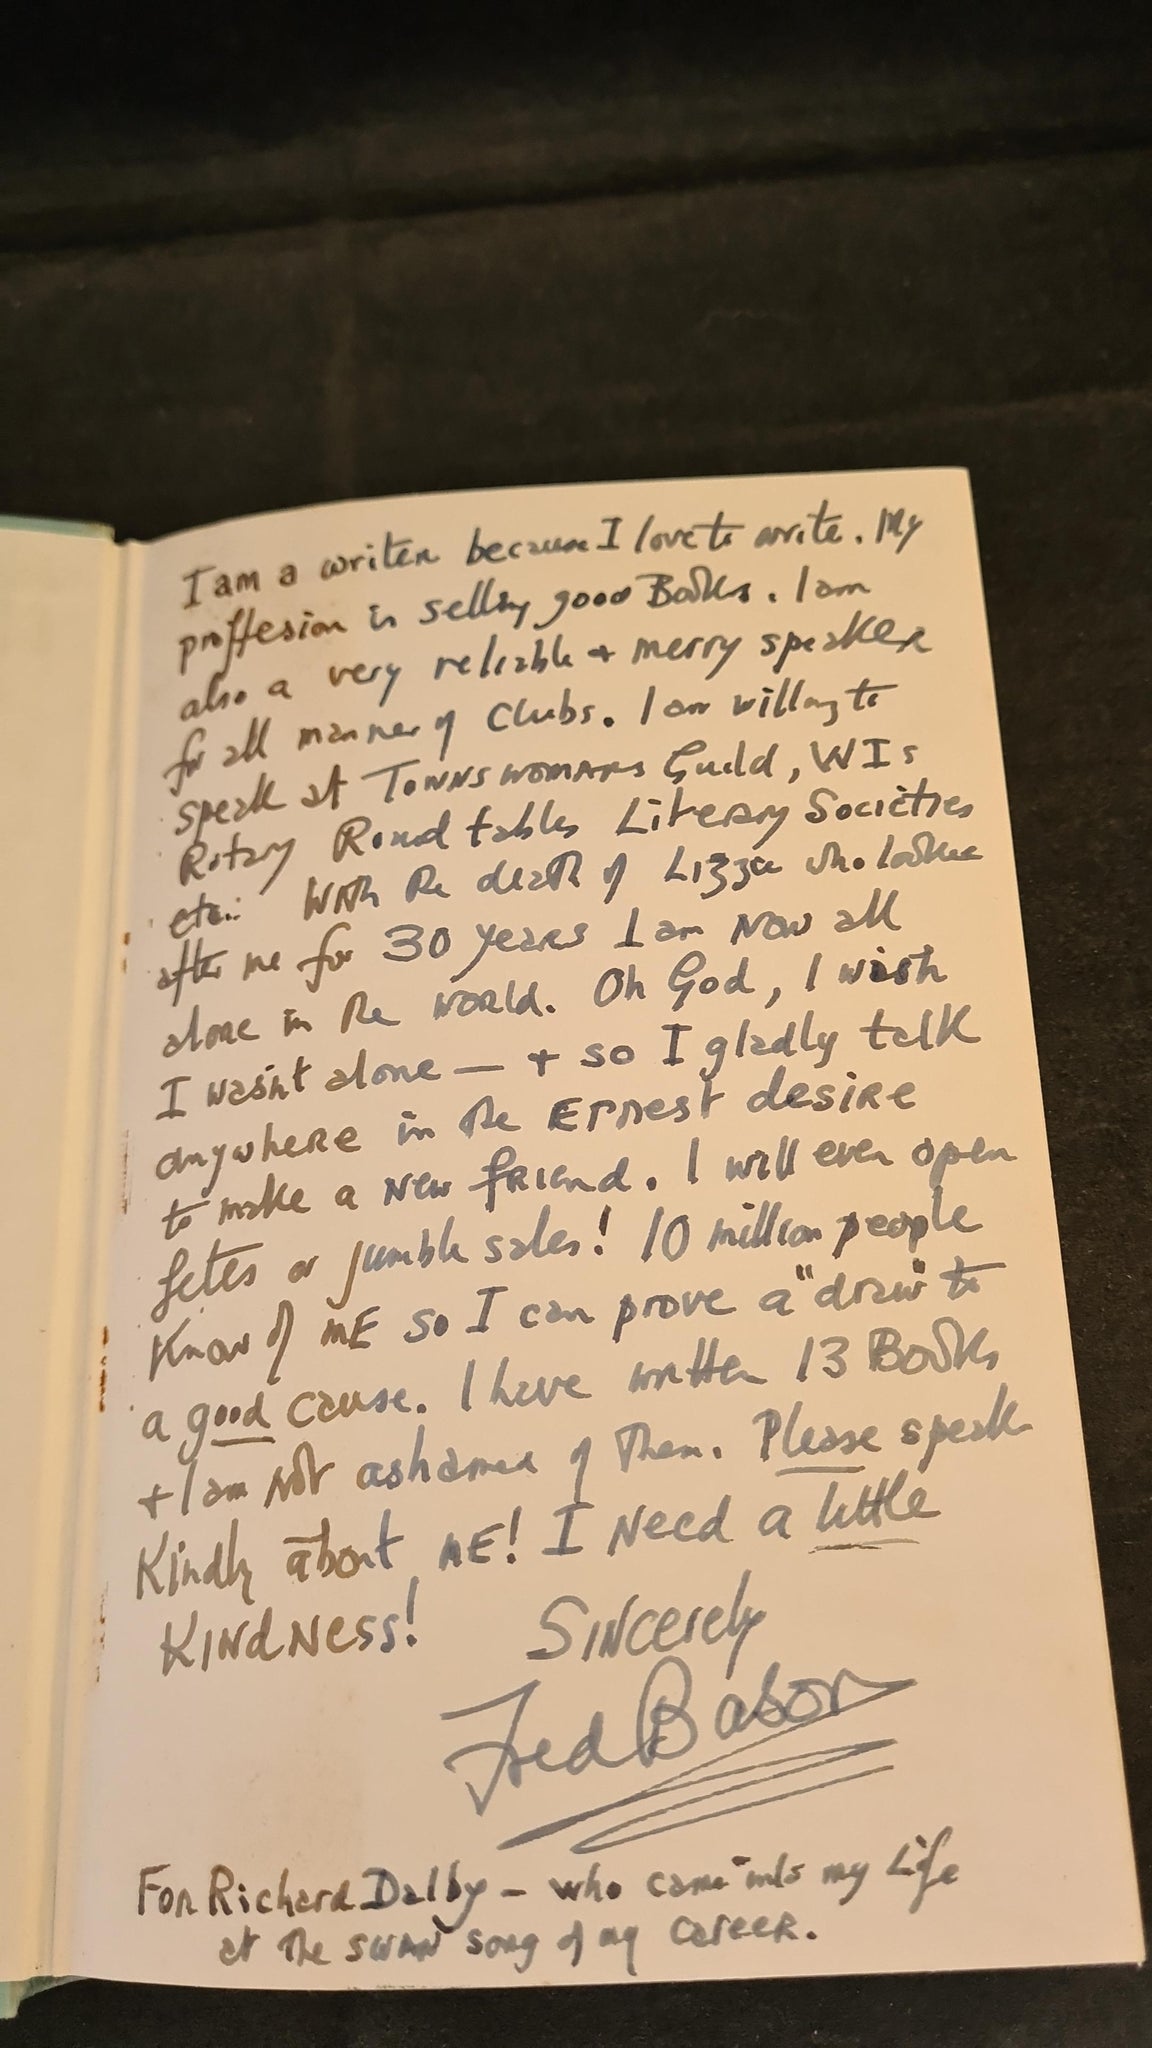 I am a writer because I love to write. My
proffesion is selling good Books. I am
also a very reliable + merry speaker
for all manner of Clubs. I am willing to
speak at Townswomans Guild, WIs
Rotary Round tables Literary Societies
etc.. With the death of Lizzie who looked
after me for 30 years I am Now all
alone in the world. Oh God, I wish
I wasn't alone — + so I gladly talk
anywhere in the Ernest desire
to make a New friend. I will even open
fetes or jumble sales! 10 million people
Know of ME so I can prove a "draw" to
a good cause. I have written 13 Books
+ I am Not ashamed of them. Please speak
Kindly about ME! I Need a little
KINdNess!
Sincerely
Fred Bason
For Richard Dalby – who came into my Life
at the swan song of my career.